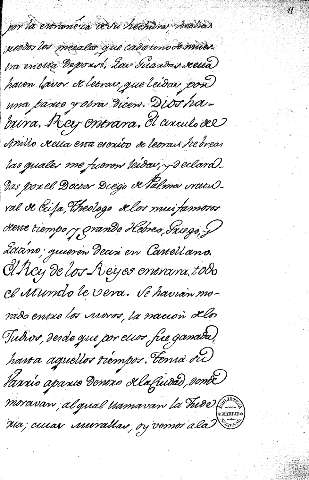 por la extrañeza de su hechura,
nedos los metales que cada uno de
tra en esta deposito. Las Guardas de ella
hacen labor de letras, que leidas por
una parte y otra dicen. Dios ha-
brira. Rey entrara. El circulo de
Anillo de ella esta escrito de letras hebreas
las quales me fueron leidas, y declara
das por el Doctor Diego de Palma natu
ral de Eçija, Theologo de los mui famosos
de este tiempo, y grande Hebreo, Griego, y
Latino; quieren decir en Castellano.
El Rey de los Reyes entrara, todo
el Mundo le vera. Se havian mo-
rado entre los Moros, la nacion de los
Judios, desde que por ellos fue ganada,
hasta aquellos tiempos. Tenia su
Barrio aparte dentro de la Ciudad, donde
moravan, al qual llamavan la Jude
ria; cuias Murallas, oy vemos a la